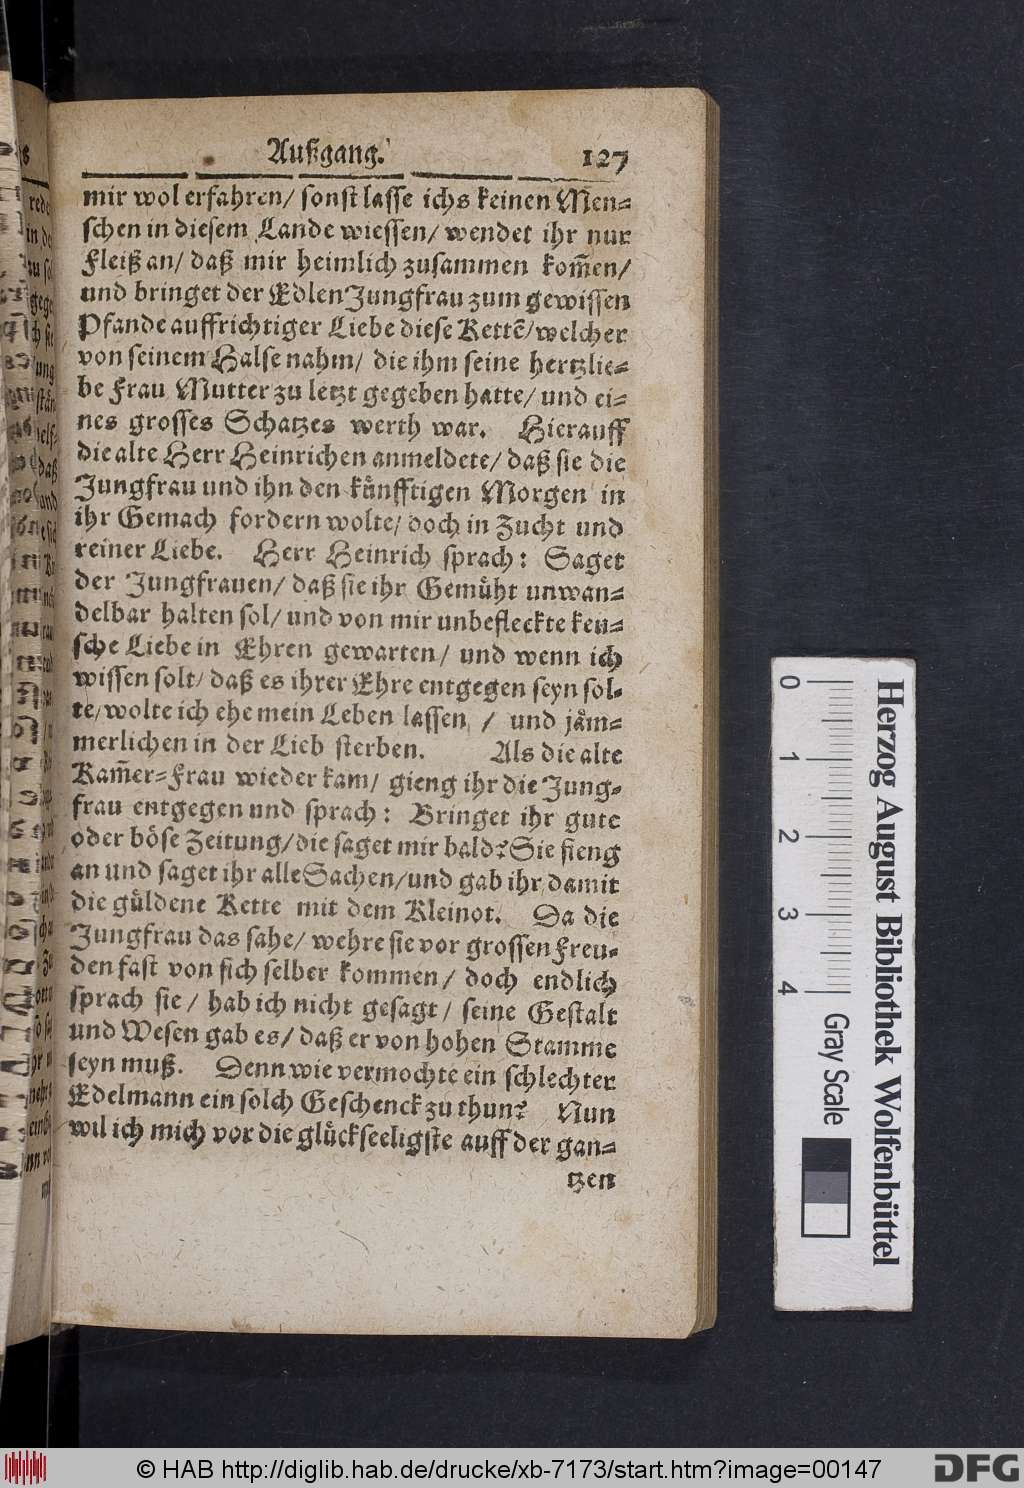 Außgang. 127
mir wol erfahren/ sonst lasse ichs keinen Men-
schen in diesem Lande wiessen/ wendet ihr nur
Fleiß an/ daß mir heimlich zusammen kom̃en/
und bringet der Edlen Jungfrau zum gewissen
Pfande auffrichtiger Liebe diese Kettẽ/ welcher
von seinem Halse nahm/ die ihm seine hertzlie-
be Frau Mutter zu letzt gegeben hatte/ und ei-
nes grosses Schatzes werth war. Hierauff
die alte Herr Heinrichen anmeldete/ daß sie die
Jungfrau und ihn den kuͤnfftigen Morgen in
ihr Gemach fordern wolte/ doch in Zucht und
reiner Liebe. Herr Heinrich sprach: Saget
der Jungfrauen/ daß sie ihr Gemuͤht unwan-
delbar halten sol/ und von mir unbefleckte keu-
sche Liebe in Ehren gewarten/ und wenn ich
wissen solt/ daß es ihrer Ehre entgegen seyn sol-
te/ wolte ich ehe mein Leben lassen / und jaͤm-
merlichen in der Lieb sterben. Als die alte
Kam̃er-Frau wieder kam/ gieng ihr die Jung-
frau entgegen und sprach: Bringet ihr gute
oder boͤse Zeitung/ die saget mir bald? Sie fieng
an und saget ihr alle Sachen/ und gab ihr damit
die guͤldene Kette mit dem Kleinot. Da die
Jungfrau das sahe/ wehre sie vor grossen Freu-
den fast von sich selber kommen/ doch endlich
sprach sie/ hab ich nicht gesagt/ seine Gestalt
und Wesen gab es/ daß er von hohen Stamme
seyn muß. Denn wie vermochte ein schlechter
Edelmann ein solch Geschenck zu thun? Nun
wil ich mich vor die gluͤckseeligste auff der gan-
tzen
0 1 2 3 4 Gray Scale
Herzog August Bibliothek Wolfenbüttel
© HAB http://diglib.hab.de/drucke/xb-7173/start.htm?image=00147
DFG